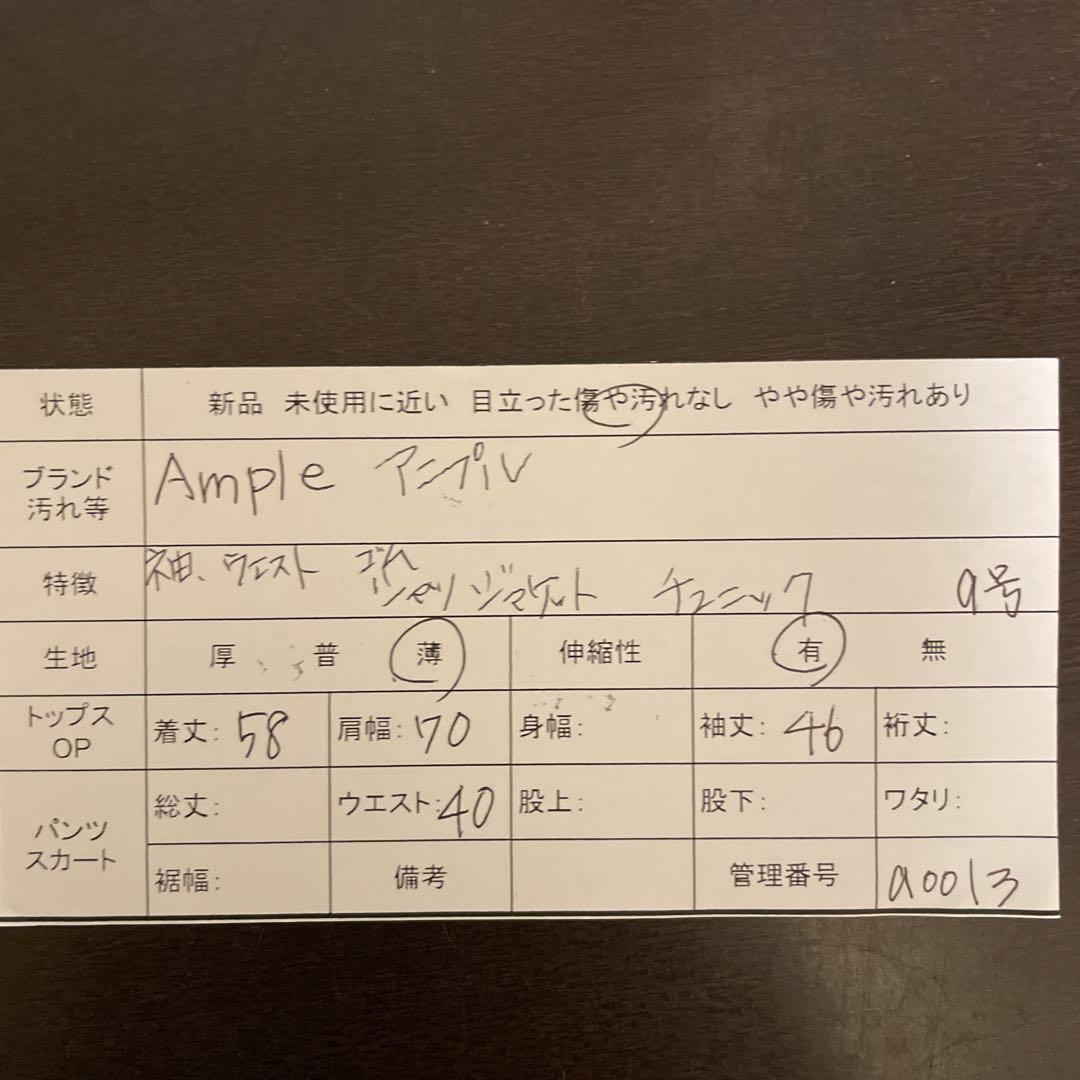 状態 新品 未使用に近い 目立った傷や汚れなし やや傷や汚れあり
ブランド
汚れ等 Ample アンプル
特徴 袖、ウエスト ゴム
シャツジャケット チュニック 9号
生地 厚 普 薄 伸縮性 有 無
トップス
OP 着丈: 58 肩幅: 70 身幅: 袖丈: 46 裄丈:
パンツ
スカート 総丈: ウエスト: 40 股上: 股下: ワタリ:
裾幅: 備考 管理番号 a0013